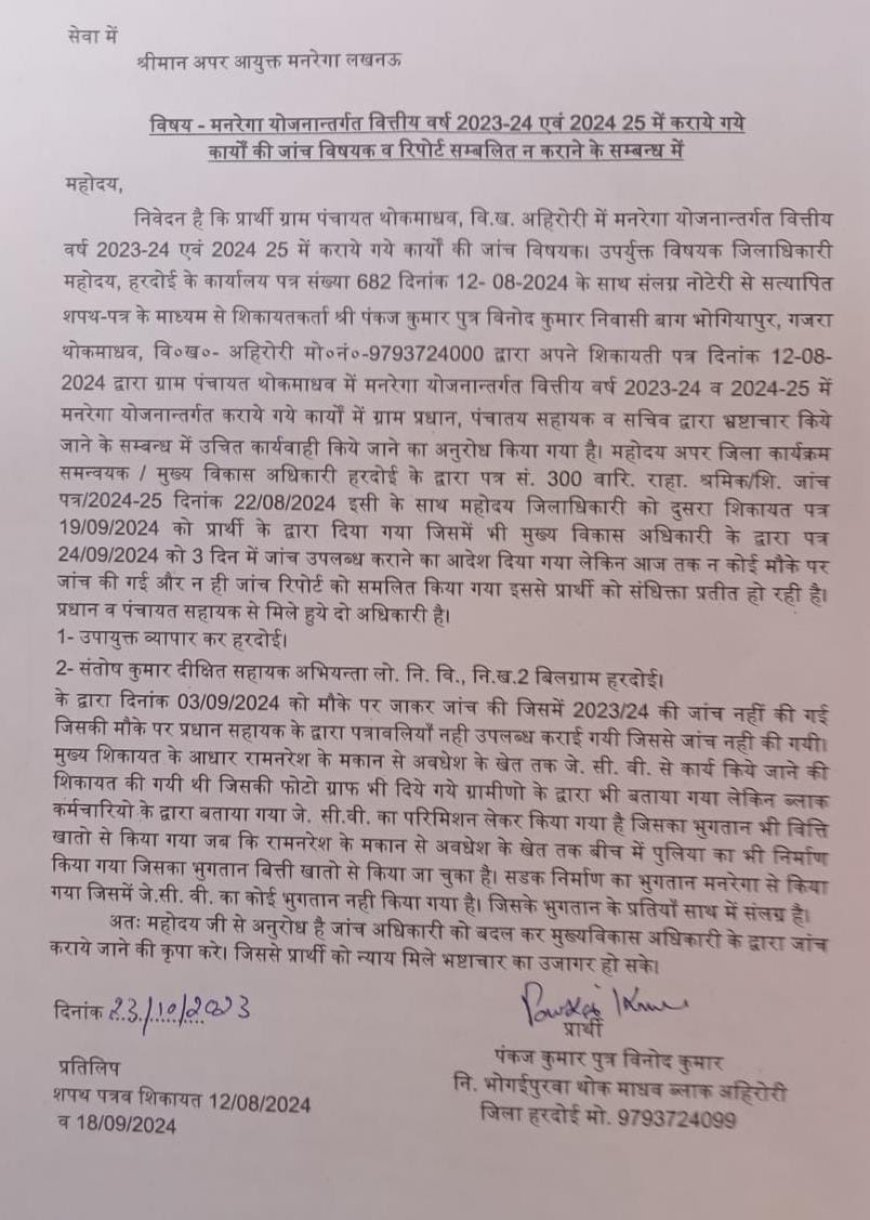 सेवा में
श्रीमान अपर आयुक्त मनरेगा लखनऊ
विषय - मनरेगा योजनान्तर्गत वित्तीय वर्ष 2023-24 एवं 2024 25 में कराये गये
कार्यों की जांच विषयक व रिपोर्ट सम्बलित न कराने के सम्बन्ध में
महोदय,
निवेदन है कि प्रार्थी ग्राम पंचायत थोकमाधव, वि.ख. अहिरोरी में मनरेगा योजनान्तर्गत वित्तीय
वर्ष 2023-24 एवं 2024 25 में कराये गये कार्यों की जांच विषयक। उपर्युक्त विषयक जिलाधिकारी
महोदय, हरदोई के कार्यालय पत्र संख्या 682 दिनांक 12- 08-2024 के साथ संलग्न नोटेरी से सत्यापित
शपथ-पत्र के माध्यम से शिकायतकर्ता श्री पंकज कुमार पुत्र विनोद कुमार निवासी बाग भोगियापुर, गजरा
थोकमाधव, वि०ख०- अहिरोरी मो०नं०-9793724000 द्वारा अपने शिकायती पत्र दिनांक 12-08-
2024 द्वारा ग्राम पंचायत थोकमाधव में मनरेगा योजनान्तर्गत वित्तीय वर्ष 2023-24 व 2024-25 में
मनरेगा योजनान्तर्गत कराये गये कार्यों में ग्राम प्रधान, पंचातय सहायक व सचिव द्वारा भ्रष्टाचार किये
जाने के सम्बन्ध में उचित कार्यवाही किये जाने का अनुरोध किया गया है। महोदय अपर जिला कार्यक्रम
समन्वयक / मुख्य विकास अधिकारी हरदोई के द्वारा पत्र सं. 300 वारि. राहा. श्रमिक/शि. जांच
पत्र/2024-25 दिनांक 22/08/2024 इसी के साथ महोदय जिलाधिकारी को दुसरा शिकायत पत्र
19/09/2024 को प्रार्थी के द्वारा दिया गया जिसमें भी मुख्य विकास अधिकारी के द्वारा पत्र
24/09/2024 को 3 दिन में जांच उपलब्ध कराने का आदेश दिया गया लेकिन आज तक न कोई मौके पर
जांच की गई और न ही जांच रिपोर्ट को समलित किया गया इससे प्रार्थी को संधिक्ता प्रतीत हो रही है।
प्रधान व पंचायत सहायक से मिले हुये दो अधिकारी है।
1- उपायुक्त व्यापार कर हरदोई।
2- संतोष कुमार दीक्षित सहायक अभियन्ता लो. नि. वि., नि.ख.2 बिलग्राम हरदोई।
के द्वारा दिनांक 03/09/2024 को मौके पर जाकर जांच की जिसमें 2023/24 की जांच नहीं की गई
जिसकी मौके पर प्रधान सहायक के द्वारा पत्रावलियाँ नही उपलब्ध कराई गयी जिससे जांच नही की गयी।
मुख्य शिकायत के आधार रामनरेश के मकान से अवधेश के खेत तक जे. सी. वी. से कार्य किये जाने की
शिकायत की गयी थी जिसकी फोटो ग्राफ भी दिये गये ग्रामीणो के द्वारा भी बताया गया लेकिन ब्लाक
कर्मचारियो के द्वारा बताया गया जे. सी.वी. का परिमिशन लेकर किया गया है जिसका भुगतान भी वित्ति
खातो से किया गया जब कि रामनरेश के मकान से अवधेश के खेत तक बीच में पुलिया का भी निर्माण
किया गया जिसका भुगतान बित्ती खातो से किया जा चुका है। सडक निर्माण का भुगतान मनरेगा से किया
गया जिसमें जे.सी. वी. का कोई भुगतान नही किया गया है। जिसके भुगतान के प्रतियाँ साथ में संलग्न है।
अतः महोदय जी से अनुरोध है जांच अधिकारी को बदल कर मुख्यविकास अधिकारी के द्वारा जांच
कराये जाने की कृपा करे। जिससे प्रार्थी को न्याय मिले भष्टाचार का उजागर हो सके।
दिनांक 23/10/2023
प्रार्थी
पंकज कुमार पुत्र विनोद कुमार
नि. भोगईपुरवा थोक माधव ब्लाक अहिरोरी
जिला हरदोई मो. 9793724099
प्रतिलिप
शपथ पत्रव शिकायत 12/08/2024
व 18/09/2024